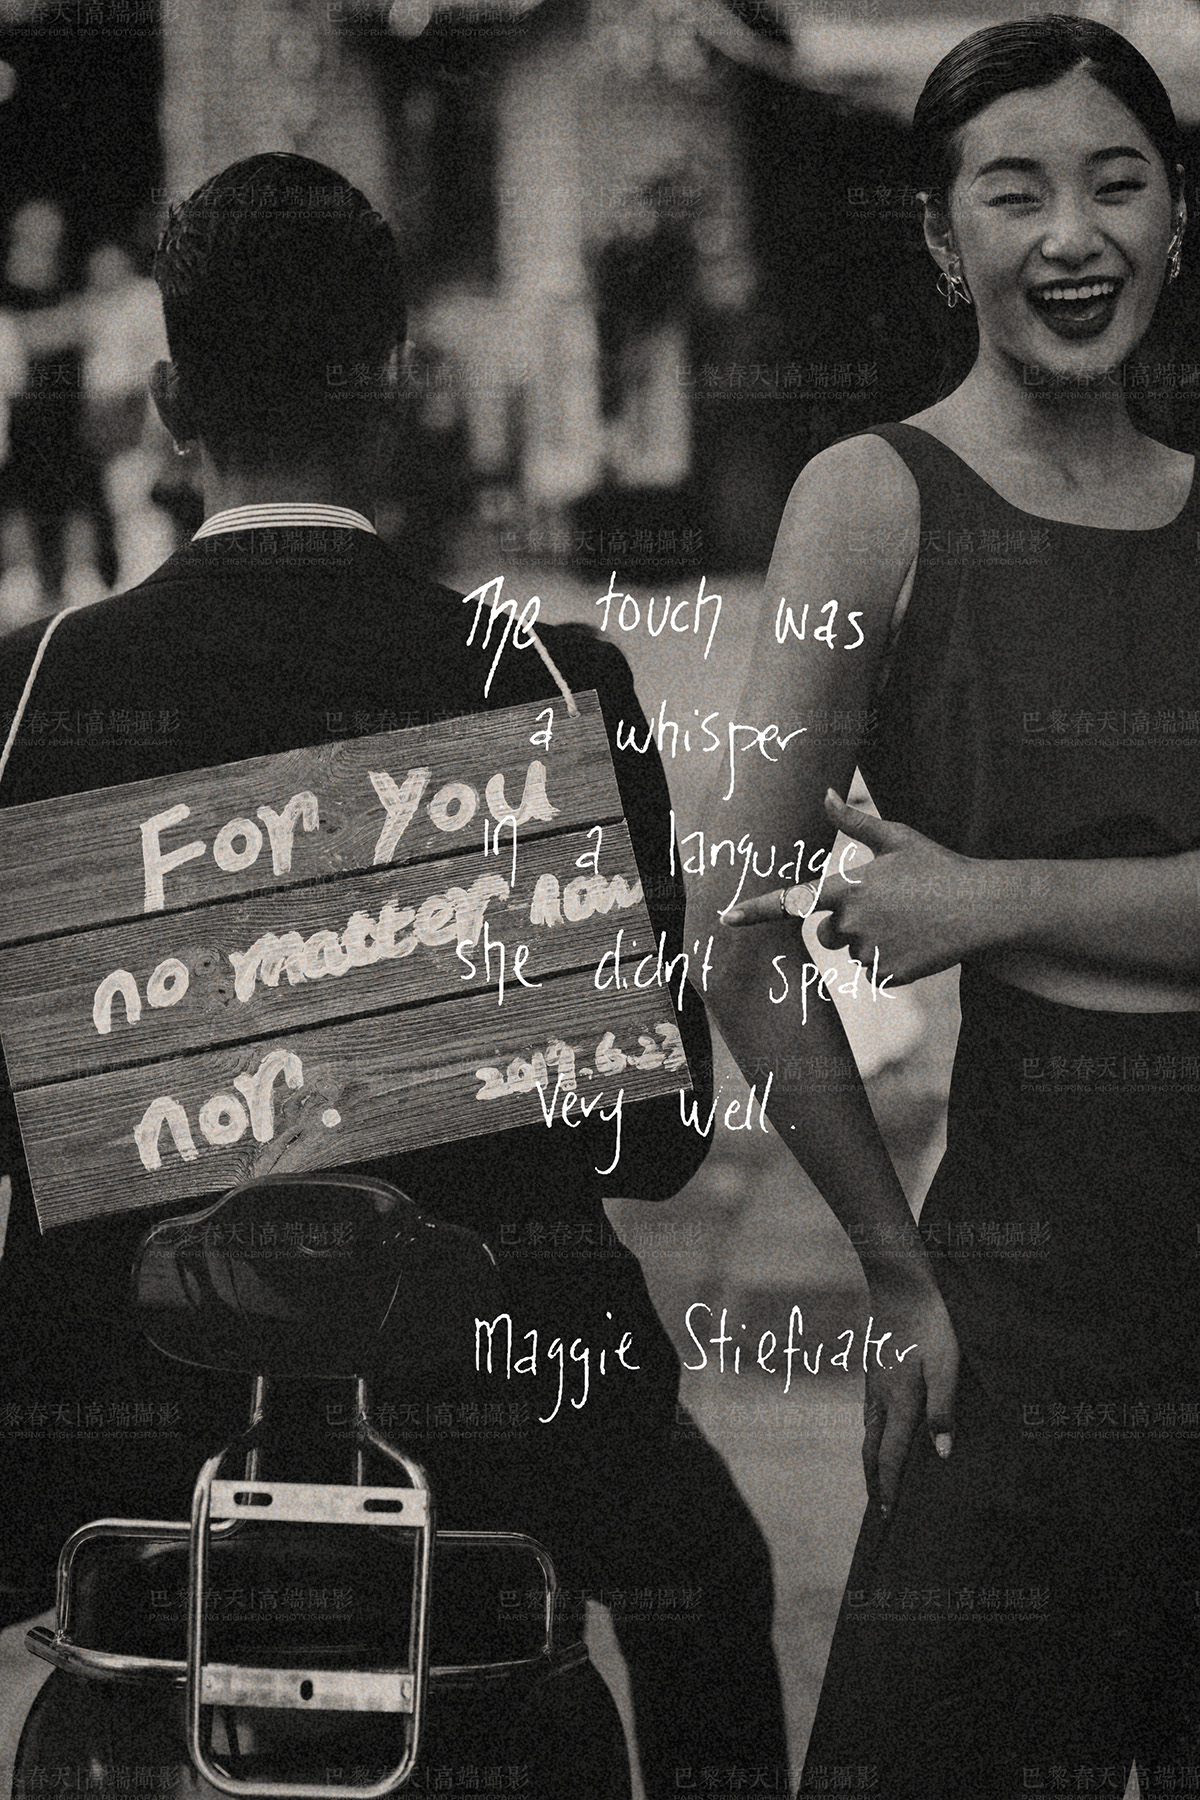 For You
no matter how
nor.
2017.6.23
The touch was
a whisper
in a language
she didn't speak
very well.
Maggie Stiefvater
巴黎春天|高端攝影
PARIS SPRING HIGH-END PHOTOGRAPHY